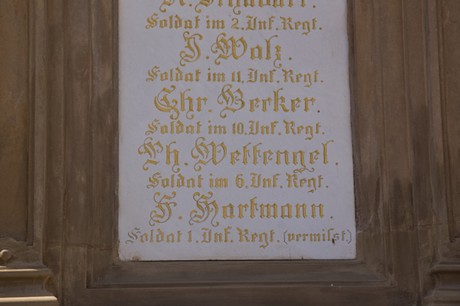 Soldat im 2. Inf. Regt.
J. Walz.
Soldat im 11. Inf. Regt.
Chr. Becker.
Soldat im 10. Inf. Regt.
Ph. Wettengel.
Soldat im 6. Inf. Regt.
F. Hartmann.
Soldat 1. Inf. Regt. (vermißt.)